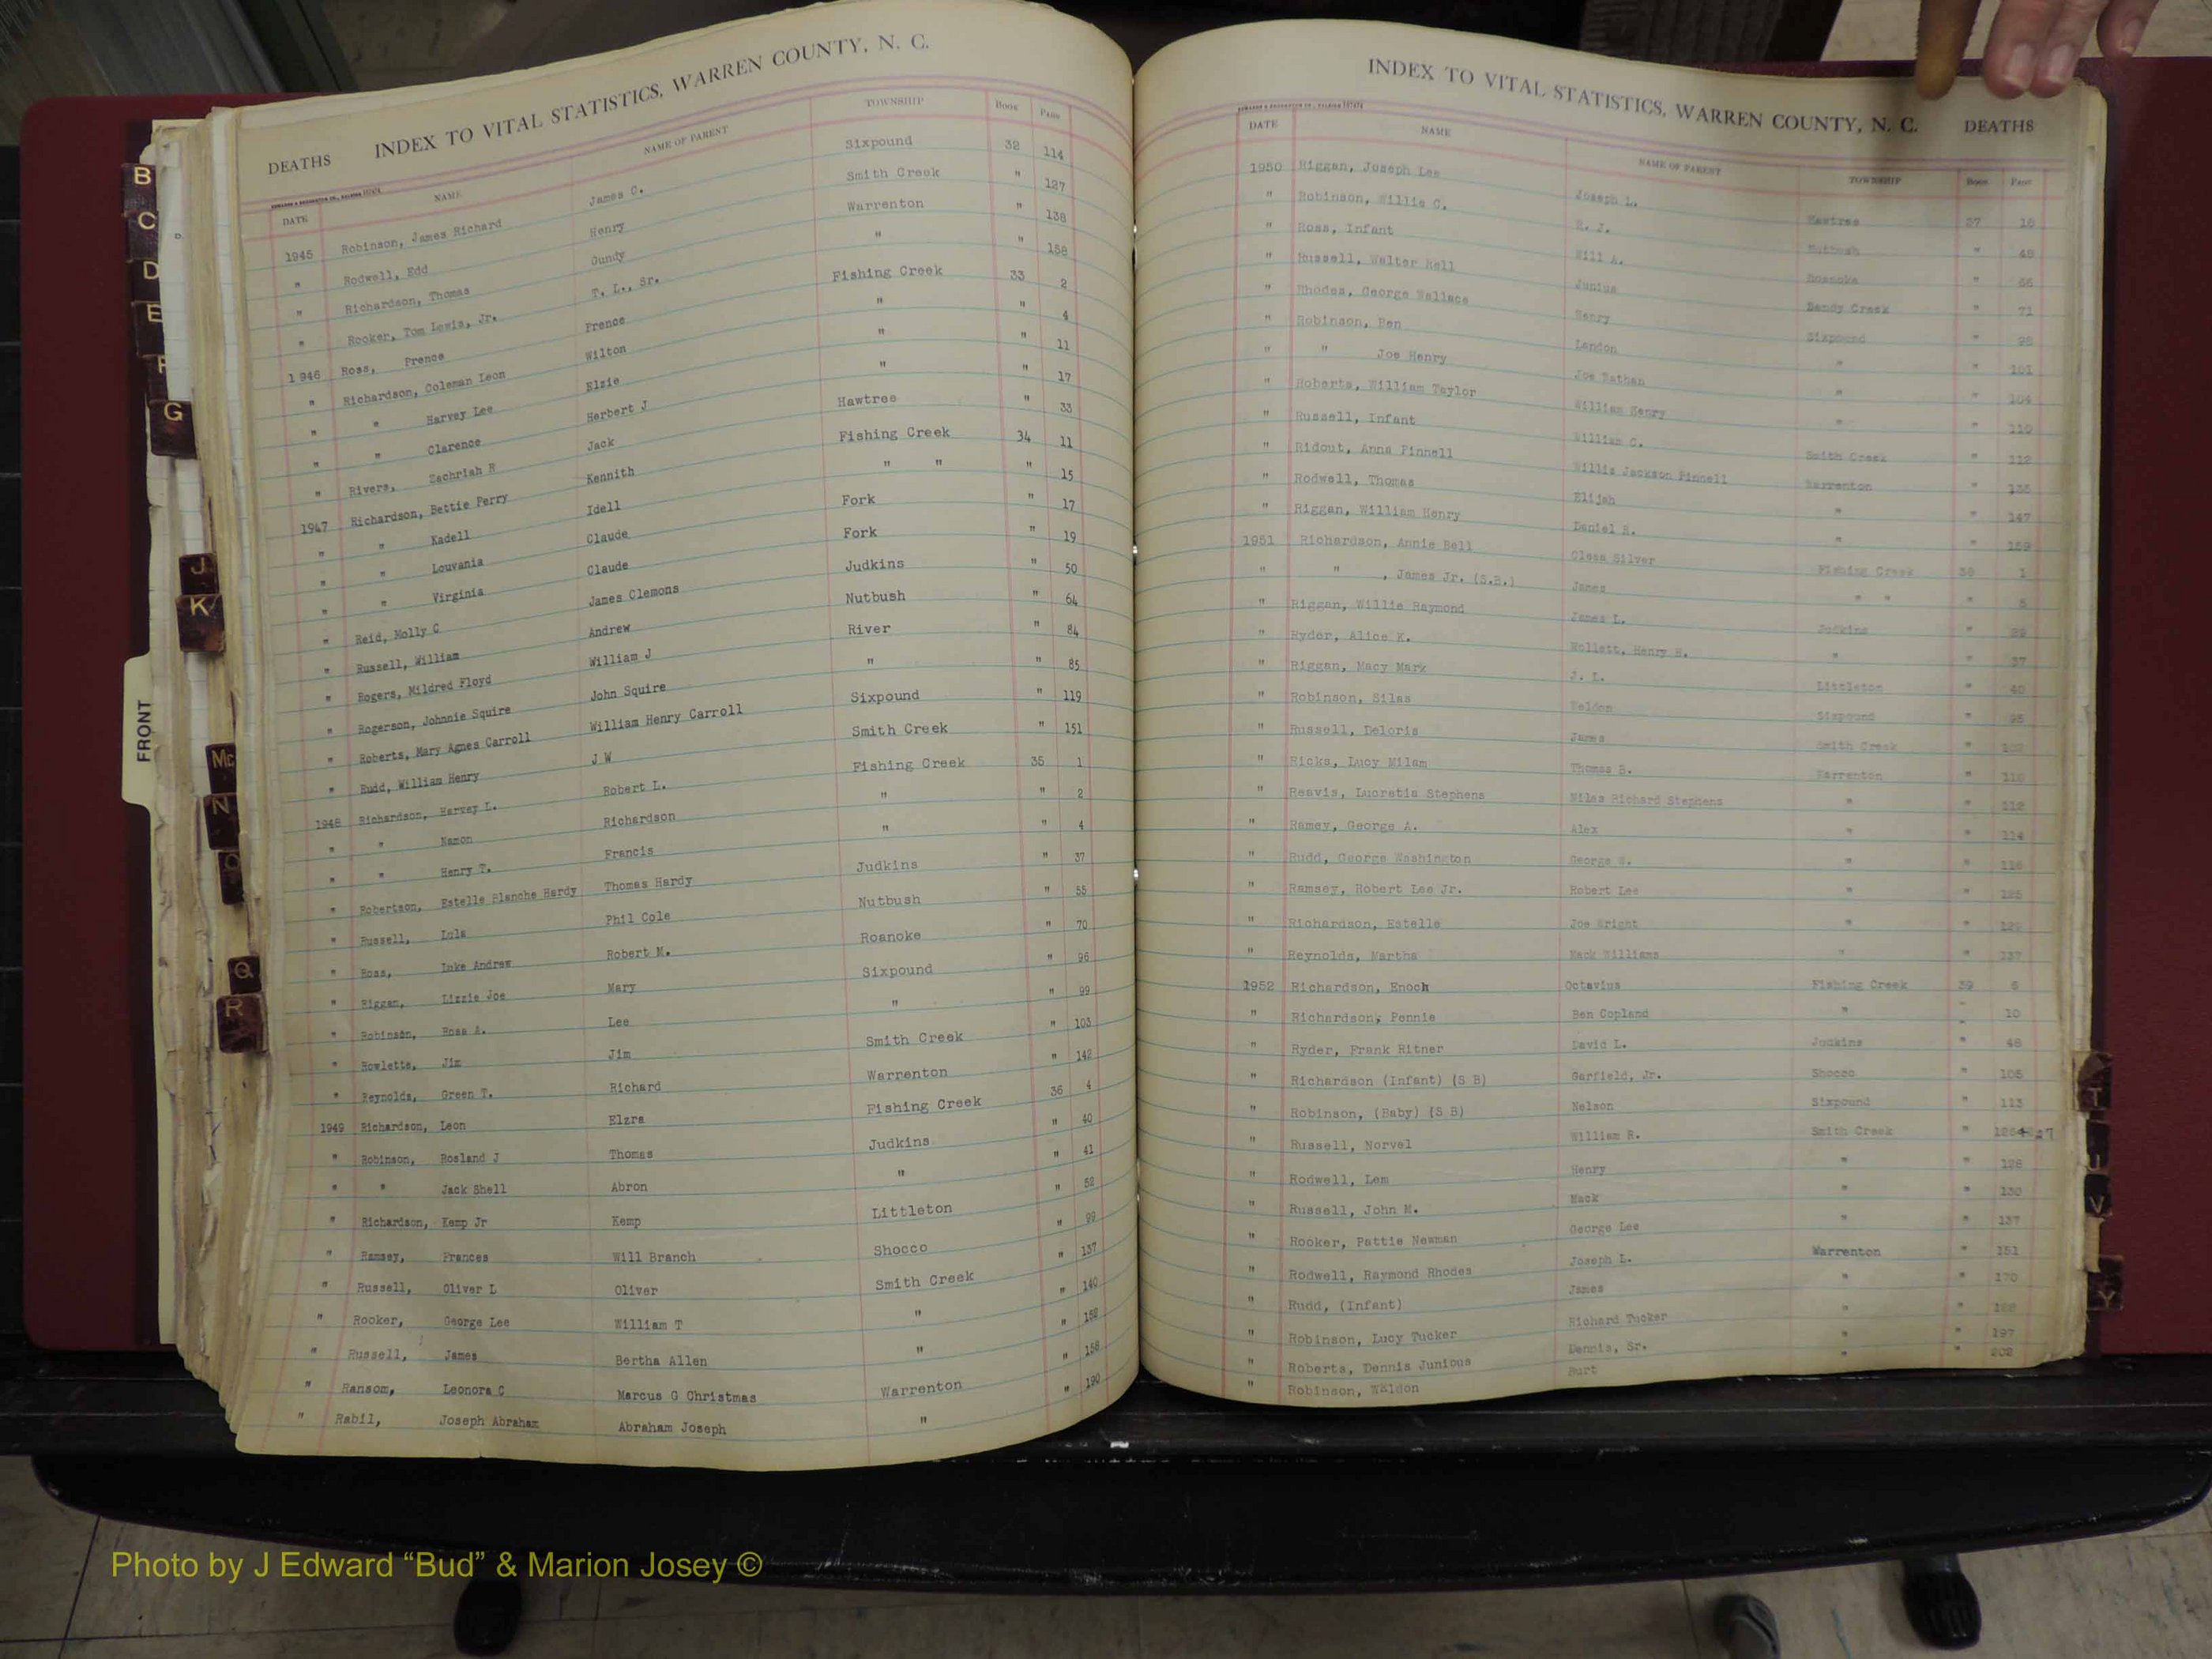 DEATHS INDEX TO VITAL STATISTICS, WARREN COUNTY, N. C.
DATE NAME NAME OF PARENT TOWNSHIP BOOK PAGE
1945 Robinson, James Richard James C. Sixpound 32 114
" Rodwell, Edd Henry Smith Creek " 127
" Richardson, Thomas Gundy Warrenton " 138
" Rooker, Tom Lewis, Jr. T. L., Sr. " " 158
1946 Ross, Prence Prence Fishing Creek 33 2
" Richardson, Coleman Leon Wilton " " 4
" " Harvey Lee Elzie " " 11
" " Clarence Herbert J " " 17
" Rivers, Zachriah R Jack Hawtree " 33
1947 Richardson, Bettie Perry Kennith Fishing Creek 34 11
" " Kadell Idell " " " 15
" " Louvania Claude Fork " 17
" " Virginia Claude Fork " 19
" Reid, Molly C James Clemons Judkins " 50
" Russell, William Andrew Nutbush " 64
" Rogers, Mildred Floyd William J River " 84
" Rogerson, Johnnie Squire John Squire " " 85
" Roberts, Mary Agnes Carroll William Henry Carroll Sixpound " 119
" Rudd, William Henry J W Smith Creek " 151
1948 Richardson, Harvey L. Robert L. Fishing Creek 35 1
" " Namon Richardson " " 2
" " Henry T. Francis " " 4
" Robertson, Estelle Blanche Hardy Thomas Hardy Judkins " 37
" Russell, Lula Phil Cole Nutbush " 55
" Ross, Luke Andrew Robert M. Roanoke " 70
" Riggan, Lizzie Joe Mary Sixpound " 96
" Robinson, Rosa A. Lee " " 99
" Rowlette, Jim Jim Smith Creek " 103
" Reynolds, Green T. Richard Warrenton " 142
1949 Richardson, Leon Elzra Fishing Creek 36 4
" Robinson, Rosland J Thomas Judkins " 40
" " Jack Shell Abron " " 41
" Richardson, Kemp Jr Kemp Littleton " 52
" Ramsey, Frances Will Branch Shocco " 99
" Russell, Oliver L Oliver Smith Creek " 137
" Rooker, George Lee William T " " 140
" Russell, James Bertha Allen " " 152
" Ransom, Leonora C Marcus G Christmas Warrenton " 158
" Rabil, Joseph Abraham Abraham Joseph " " 190
INDEX TO VITAL STATISTICS, WARREN COUNTY, N. C. DEATHS
DATE NAME NAME OF PARENT TOWNSHIP BOOK PAGE
1950 Riggan, Joseph Lee Joseph L. Hawtree 37 16
" Robinson, Willie C. R. J. Nutbush " 48
" Ross, Infant Will A. Roanoke " 66
" Russell, Walter Bell Junius Sandy Creek " 71
" Rhodes, George Wallace Henry Sixpound " 98
" Robinson, Ben Landon " " 101
" " Joe Henry Joe Nathan " " 104
" Roberts, William Taylor William Henry " " 110
" Russell, Infant William C. Smith Creek " 112
" Ridout, Anna Pinnell Willis Jackson Pinnell Warrenton " 136
" Rodwell, Thomas Elijah " " 147
" Riggan, William Henry Daniel R. " " 159
1951 Richardson, Annie Bell Silver Fishing Creek 38 1
" " , James Jr. (S.B.) James " " " 5
" Riggan, Willie Raymond James L. Judkins "
" Ryder, Alice K. Wollett, Henry H. " " 37
" Riggan, Macy Mark J. L. Littleton " 40
" Robinson, Silas Weldon Sixpound " 95
" Russell, Deloris James Smith Creek "
" Ricks, Lucy Milam Thomas B. Warrenton "
" Reavis, Lucretia Stephens Niles Richard Stephens " " 112
" Ramey, George A. Alex " " 114
" Rudd, George Washington George W. " "
" Ramsey, Robert Lee Jr. Robert Lee " " 125
" Richardson, Estelle Joe Wright " " 129
" Reynolds, Martha Mack Williams " " 137
1952 Richardson, Enoch Octavius Fishing Creek 39 6
" Richardson, Pennie Ben Copland " " 10
" Ryder, Frank Ritner David L. Judkins " 46
" Richardson (Infant) (S B) Garfield, Jr. Shocco " 105
" Robinson, (Baby) (S B) Nelson Sixpound " 113
" Russell, Norvel William R. Smith Creek "
" Rodwell, Lem Henry " " 128
" Russell, John M. Mack " " 130
" Rooker, Pattie Newman George Lee " " 137
" Rodwell, Raymond Rhodes Joseph L. Warrenton " 151
" Rudd, (Infant) James " " 170
" Robinson, Lucy Tucker Richard Tucker " "
" Roberts, Dennis Junious Dennis, Sr. " " 197
" Robinson, Waldon Burt " " 202
B
C
D
E
F
G
J
K
Mc
N
O
Q
R
FRONT
T
U
V
Y
Photo by J Edward “Bud” & Marion Josey ©